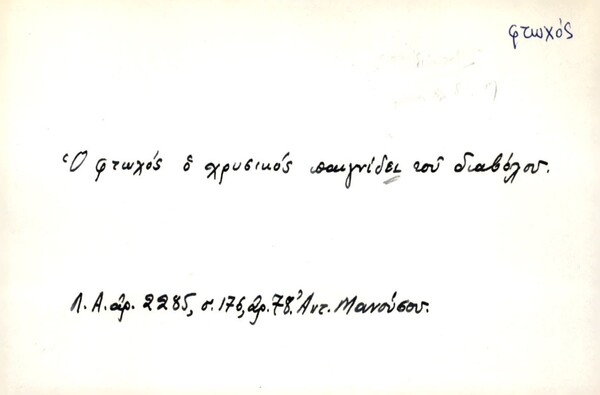 φτωχός
Ὁ φτωχός ὁ χρυσικός παιγνίδει τοῦ διαβόλου.
Λ.Α. ἀρ. 2285, σ. 176, ἀρ. 78. Ἀντ. Μανούσου.